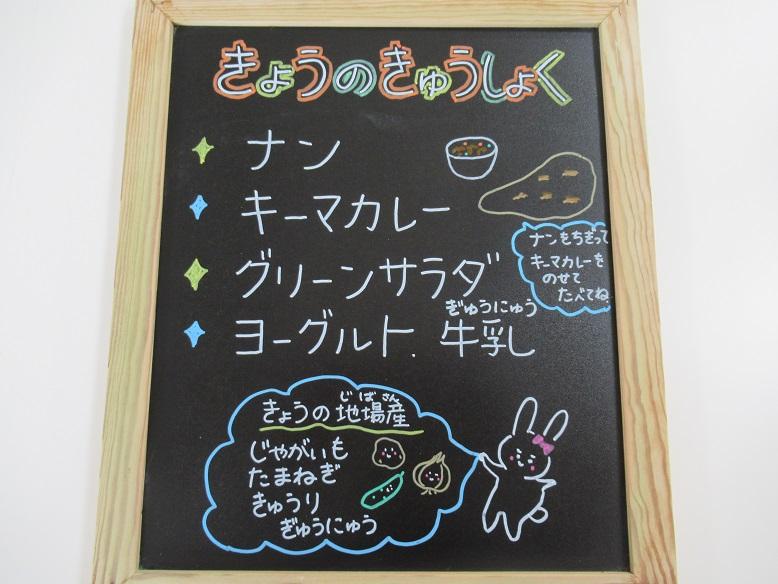 きょうのきゅうしょく
ナン
キーマカレー
グリーンサラダ
ヨーグルト. 牛乳
ぎゅうにゅう
ナンをちぎって
キーマカレーを
のせて
たべてね
きょうの地場産
じばさん
じゃがいも
たまねぎ
きゅうり
ぎゅうにゅう